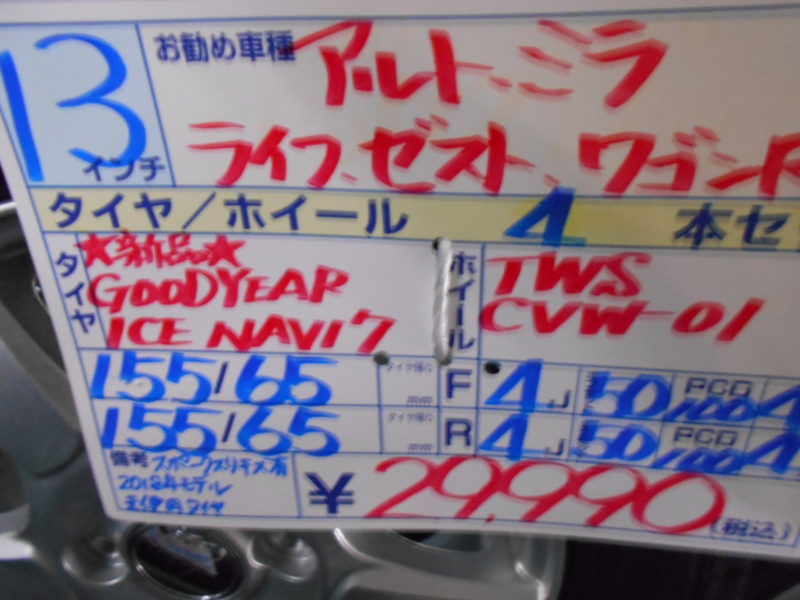 13 インチ
お勧め車種 アルト、ミラ
ライフ、ゼスト、ワゴンR
タイヤ/ホイール 4 本セ
タイヤ ★新品★
GOODYEAR
ICE NAVI7
ホイール TWS
CVW-01
155/65 タイヤ残り mm F 4 J 50 PCD 100 4
155/65 タイヤ残り mm R 4 J 50 PCD 100 4
備考
2018年モデル
未使用タイヤ
¥ 29,990 (税込)